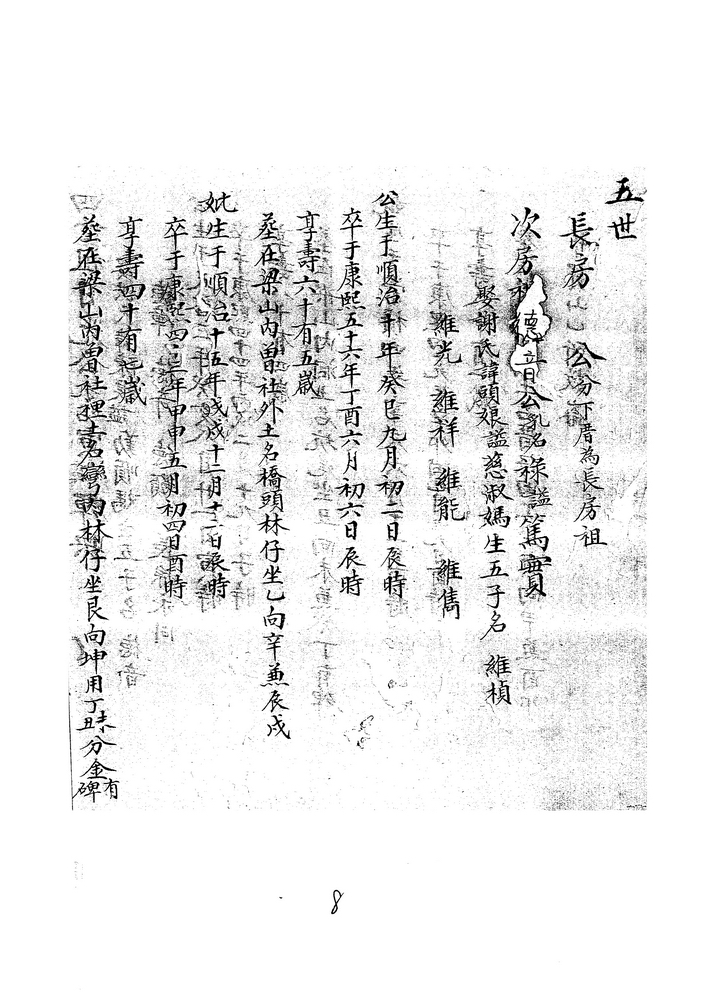 五世
長房 公分丁厝為長房祖
次房 德音公乳名祿謚篤實
娶謝氏諱頭娘謚慈淑媽生五子名 維楨
維光 維祥 維能 維雋
公生于順治十年癸巳九月初二日辰時
卒于康熙五十六年丁酉六月初六日辰時
享壽六十有五歲
葬在梁山內曾社外土名橋頭林仔坐乙向辛兼辰戌
妣生于順治十五年戊戌十二月十二日辰時
卒于康熙四十三年甲申五月初四日酉時
享壽四十有 歲
葬在梁山內曾社裡土名灣內林仔坐艮向坤用丁丑丁未分金有碑
8